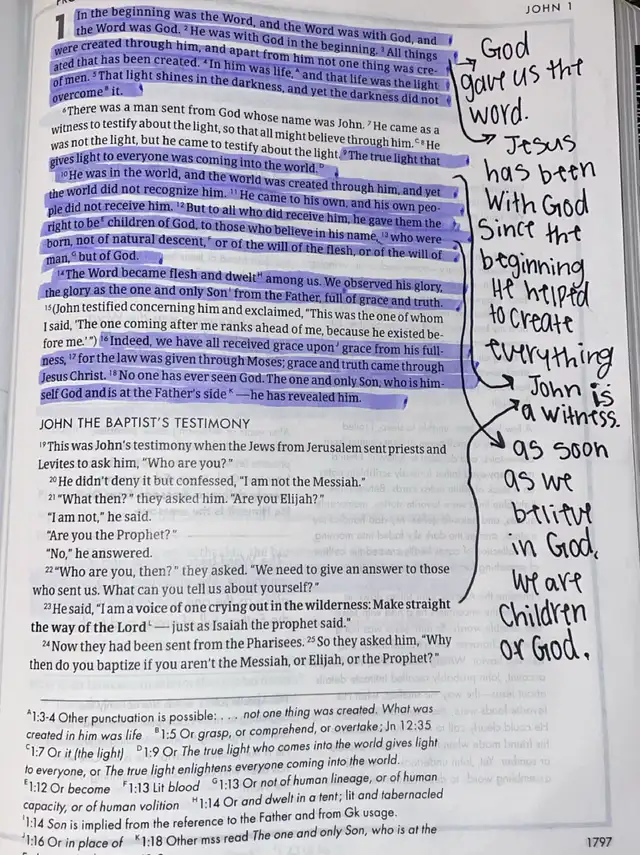 JOHN 1
1 In the beginning was the Word, and the Word was with God, and
the Word was God. 2 He was with God in the beginning. 3 All things
were created through him, and apart from him not one thing was cre-
ated that has been created. 4 In him was life,A and that life was the light
of men. 5 That light shines in the darkness, and yet the darkness did not
overcomeB it.
6 There was a man sent from God whose name was John. 7 He came as a
witness to testify about the light, so that all might believe through him.C 8 He
was not the light, but he came to testify about the light. 9 The true light that
gives light to everyone was coming into the world.D
10 He was in the world, and the world was created through him, and yet
the world did not recognize him. 11 He came to his own, and his own peo-
ple did not receive him. 12 But to all who did receive him, he gave them the
right to beE children of God, to those who believe in his name, 13 who were
born, not of natural descent,F or of the will of the flesh, or of the will of
man,G but of God.
14 The Word became flesh and dweltH among us. We observed his glory,
the glory as the one and only SonI from the Father, full of grace and truth.
15 (John testified concerning him and exclaimed, "This was the one of whom
I said, 'The one coming after me ranks ahead of me, because he existed be-
fore me.'") 16 Indeed, we have all received grace uponJ grace from his full-
ness, 17 for the law was given through Moses; grace and truth came through
Jesus Christ. 18 No one has ever seen God. The one and only Son, who is him-
self God and is at the Father's sideK — he has revealed him.
JOHN THE BAPTIST'S TESTIMONY
19 This was John's testimony when the Jews from Jerusalem sent priests and
Levites to ask him, "Who are you?"
20 He didn't deny it but confessed, "I am not the Messiah."
21 "What then?" they asked him. "Are you Elijah?"
"I am not," he said.
"Are you the Prophet?"
"No," he answered.
22 "Who are you, then?" they asked. "We need to give an answer to those
who sent us. What can you tell us about yourself?"
23 He said, "I am a voice of one crying out in the wilderness: Make straight
the way of the LordL — just as Isaiah the prophet said."
24 Now they had been sent from the Pharisees. 25 So they asked him, "Why
then do you baptize if you aren't the Messiah, or Elijah, or the Prophet?"
A 1:3-4 Other punctuation is possible: . . . not one thing was created. What was
created in him was life B 1:5 Or grasp, or comprehend, or overtake; Jn 12:35
C 1:7 Or it (the light) D 1:9 Or The true light who comes into the world gives light
to everyone, or The true light enlightens everyone coming into the world.
E 1:12 Or become F 1:13 Lit blood G 1:13 Or not of human lineage, or of human
capacity, or of human volition H 1:14 Or and dwelt in a tent; lit and tabernacled
I 1:14 Son is implied from the reference to the Father and from Gk usage.
J 1:16 Or in place of K 1:18 Other mss read The one and only Son, who is at the
1797
God
gave us the
word.
Jesus
has been
With God
Since the
beginning
He helped
to create
everything
John is
a witness.
as soon
as we
believe
in God,
we are
Children
of God.